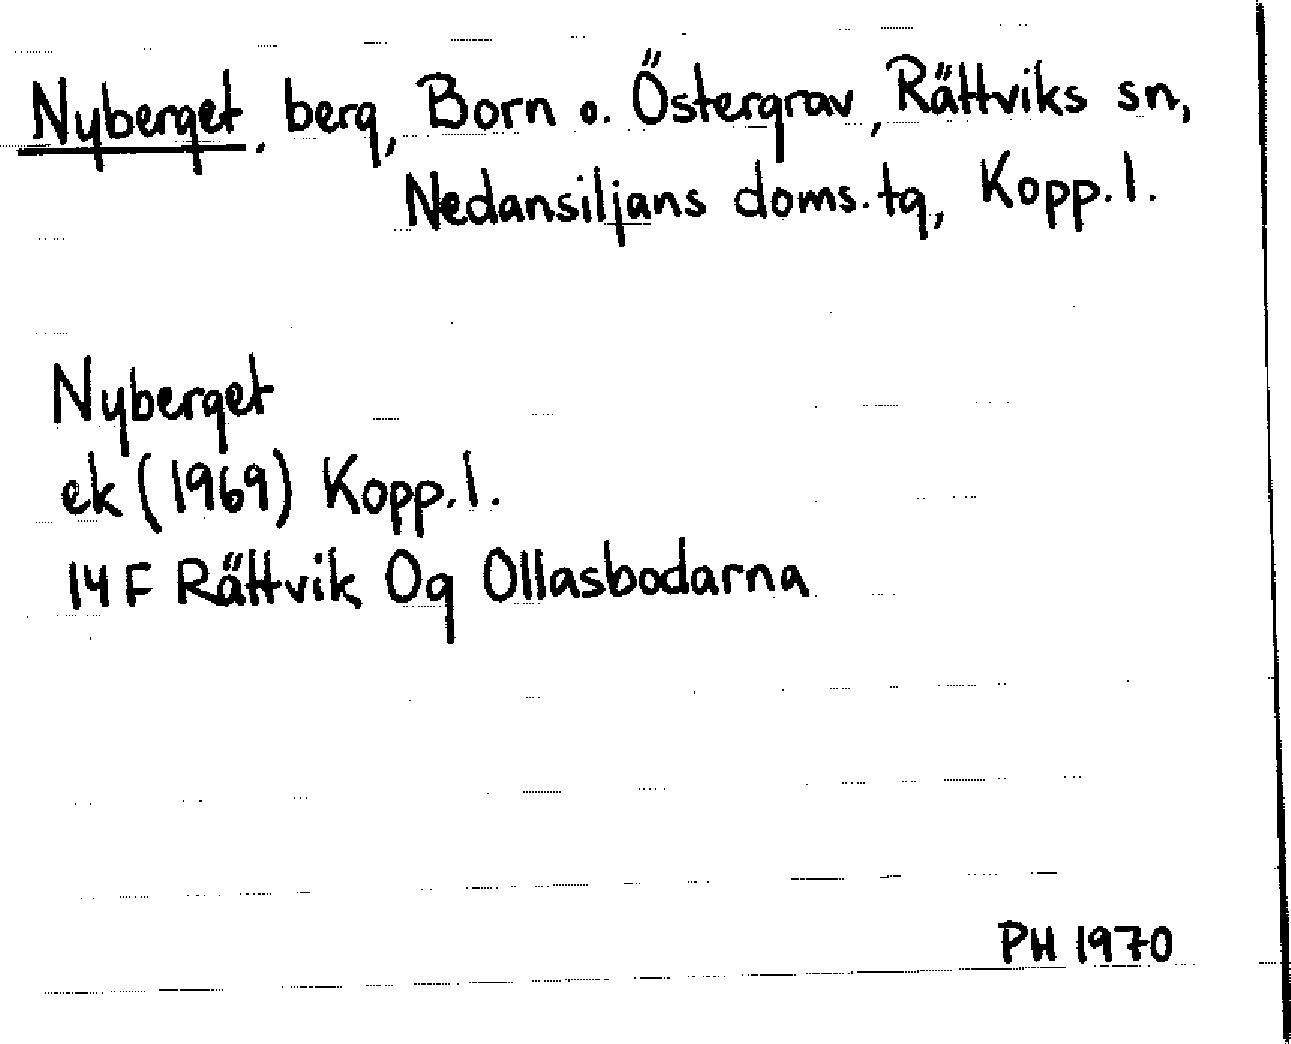 Nyberget, berg, Born o. Östergrav, Rättviks sn,
Nedansiljans doms.tg, Kopp.l.
Nyberget
ek (1969) Kopp.l.
14 F Rättvik Og Ollasbodarna
PH 1970